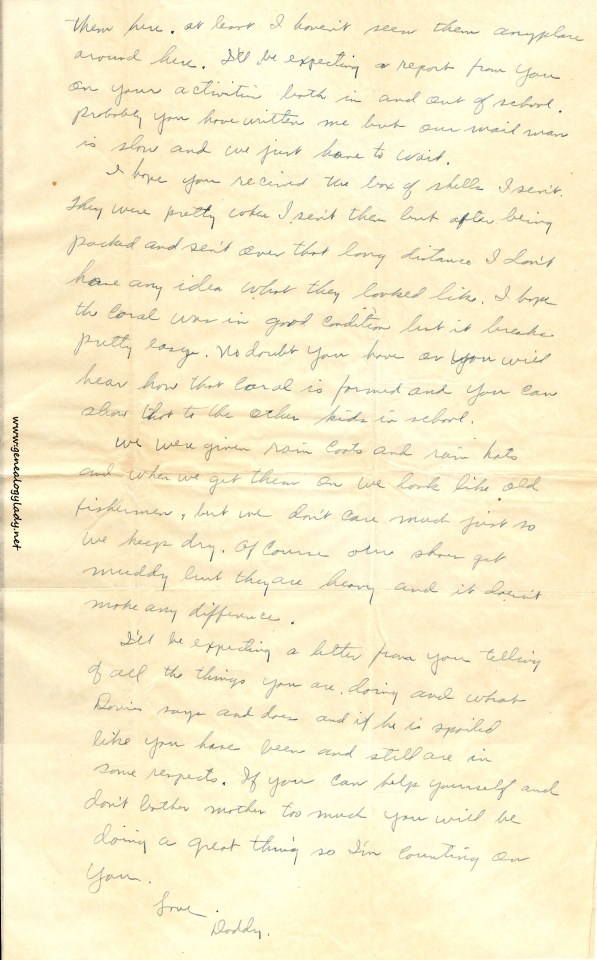 them here. at least I haven't seen them anyplace
around here. I'll be expecting a report from you
on your activities both in and out of school.
probably you have written me but our mail man
is slow and we just have to wait.
I hope you received the box of shells I sent.
They were pretty when I sent them but after being
packed and sent over that long distance I don't
have any idea what they looked like. I hope
the coral was in good condition but it breaks
pretty easy. No doubt you have or you will
hear how that coral is formed and you can
show that to the other kids in school.
we were given rain coats and rain hats
and when we get them on we look like old
fishermen, but we don't care much just so
we keep dry. Of course our shoes get
muddy but they are heavy and it doesn't
make any difference.
I'll be expecting a letter from you telling
of all the things you are doing and what
says and does and if he is spoiled
like you have been and still are in
some respects. If you can help yourself and
don't bother mother too much you will be
doing a great thing so I'm counting on
you.
Love.
Daddy.
www.genealogylady.net